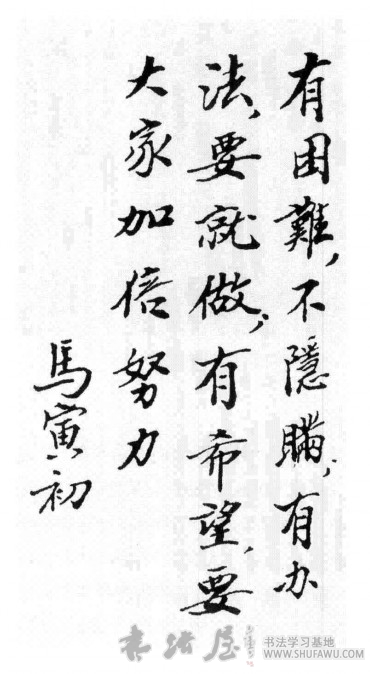 有困難，不隱瞞；有办
法，要就做；有希望，要
大家加倍努力
馬寅初
书法屋
书法学习基地
WWW.SHUFAWU.COM